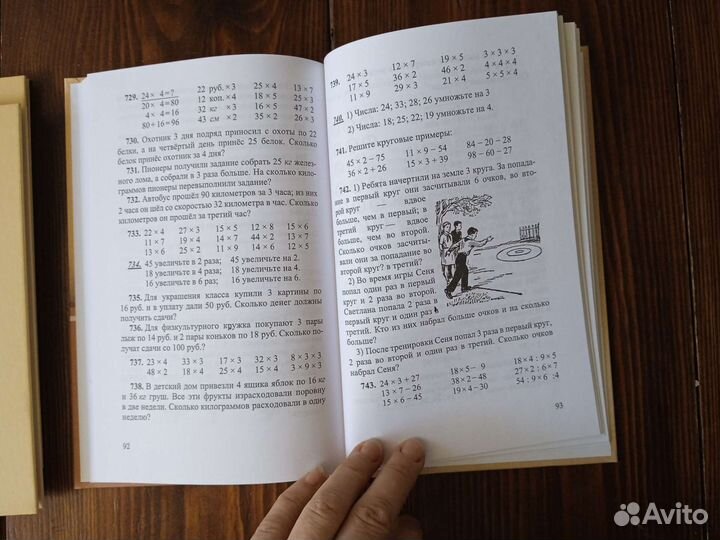 729. 24 × 4=? 22 руб. ×3 25 × 4 13 × 7
20 × 4=80 12 коп. ×4 18 × 5 25 × 3
4 × 4=16 32 кг ×3 16 × 5 47 × 2
80+16=96 43 см ×2 35 × 2 26 × 3
730. Охотник 3 дня подряд приносил с охоты по 22
белки, а на четвёртый день принёс 25 белок. Сколько
белок принёс охотник за 4 дня?
731. Пионеры получили задание собрать 25 кг желез-
ного лома, а собрали в 3 раза больше. На сколько кило-
граммов пионеры перевыполнили задание?
732. Автобус прошёл 90 километров за 3 часа; из них
2 часа он шёл со скоростью 32 километра в час. Сколько
километров он прошёл за третий час?
733. 22 × 4 27 × 3 15 × 5 12 × 8 15 × 6
11 × 7 19 × 4 14 × 7 44 × 2 13 × 7
13 × 6 25 × 2 11 × 9 14 × 6 12 × 5
734. 45 увеличьте в 2 раза; 45 увеличьте на 2.
18 увеличьте в 4 раза; 18 увеличьте на 4.
16 увеличьте в 6 раз; 16 увеличьте на 6.
735. Для украшения класса купили 3 картины по
16 руб. и в уплату дали 50 руб. Сколько денег должны
получить сдачи?
736. Для физкультурного кружка покупают 3 пары
лыж по 14 руб. и 2 пары коньков по 18 руб. Сколько по-
лучат сдачи со 100 руб.?
737. 23 × 4 33 × 3 17 × 3 32 × 3 8 × 3 × 3
48 × 2 18 × 4 25 × 4 15 × 4 3 × 9 × 3
738. В детский дом привезли 4 ящика яблок по 16 кг
и 36 кг груш. Все эти фрукты израсходовали поровну
в две недели. Сколько килограммов расходовали в одну
неделю?
92
739. 24 × 3 12 × 7 19 × 5 3 × 3 × 3
17 × 5 36 × 2 46 × 2 4 × 4 × 4
11 × 9 29 × 3 21 × 4 5 × 5 × 4
740. 1) Числа: 24; 33; 28; 26 умножьте на 3
2) Числа: 18; 25; 22; 19 умножьте на 4.
741. Решите круговые примеры:
45 × 2 – 75 11 × 9 – 54 84 – 20 – 28
36 × 2 + 26 15 × 3 + 39 98 – 60 – 27
742. 1) Ребята начертили на земле 3 круга. За попада-
ние в первый круг они засчитывали 6 очков, во вто-
рой круг — вдвое
больше, чем в первый; в
третий круг — вдвое
больше, чем во второй.
Сколько очков засчиты-
вали они за попадание во
второй круг? в третий?
2) Во время игры Сеня
попал один раз в первый
круг и 2 раза во второй.
Светлана попала 2 раза в
первый круг и один раз в
третий. Кто из них набрал больше очков и на сколько
больше?
3) После тренировки Сеня попал 3 раза в первый круг,
2 раза во второй и один раз в третий. Сколько очков
набрал Сеня?
743. 24 × 3 + 27 18 × 5 – 9 18 × 4 : 9 × 5
13 × 7 – 26 38 × 2 – 48 27 × 2 : 6 × 7
15 × 6 – 45 19 × 4 – 30 54 : 9 × 6 : 4
93
Avito